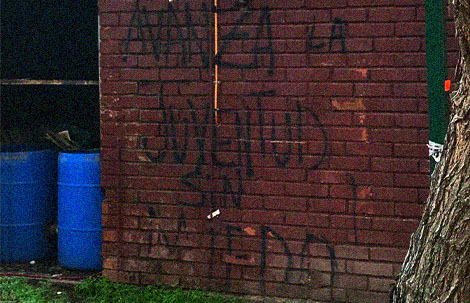 AVANZA LA
JUVENTUD
SIN
MIEDO